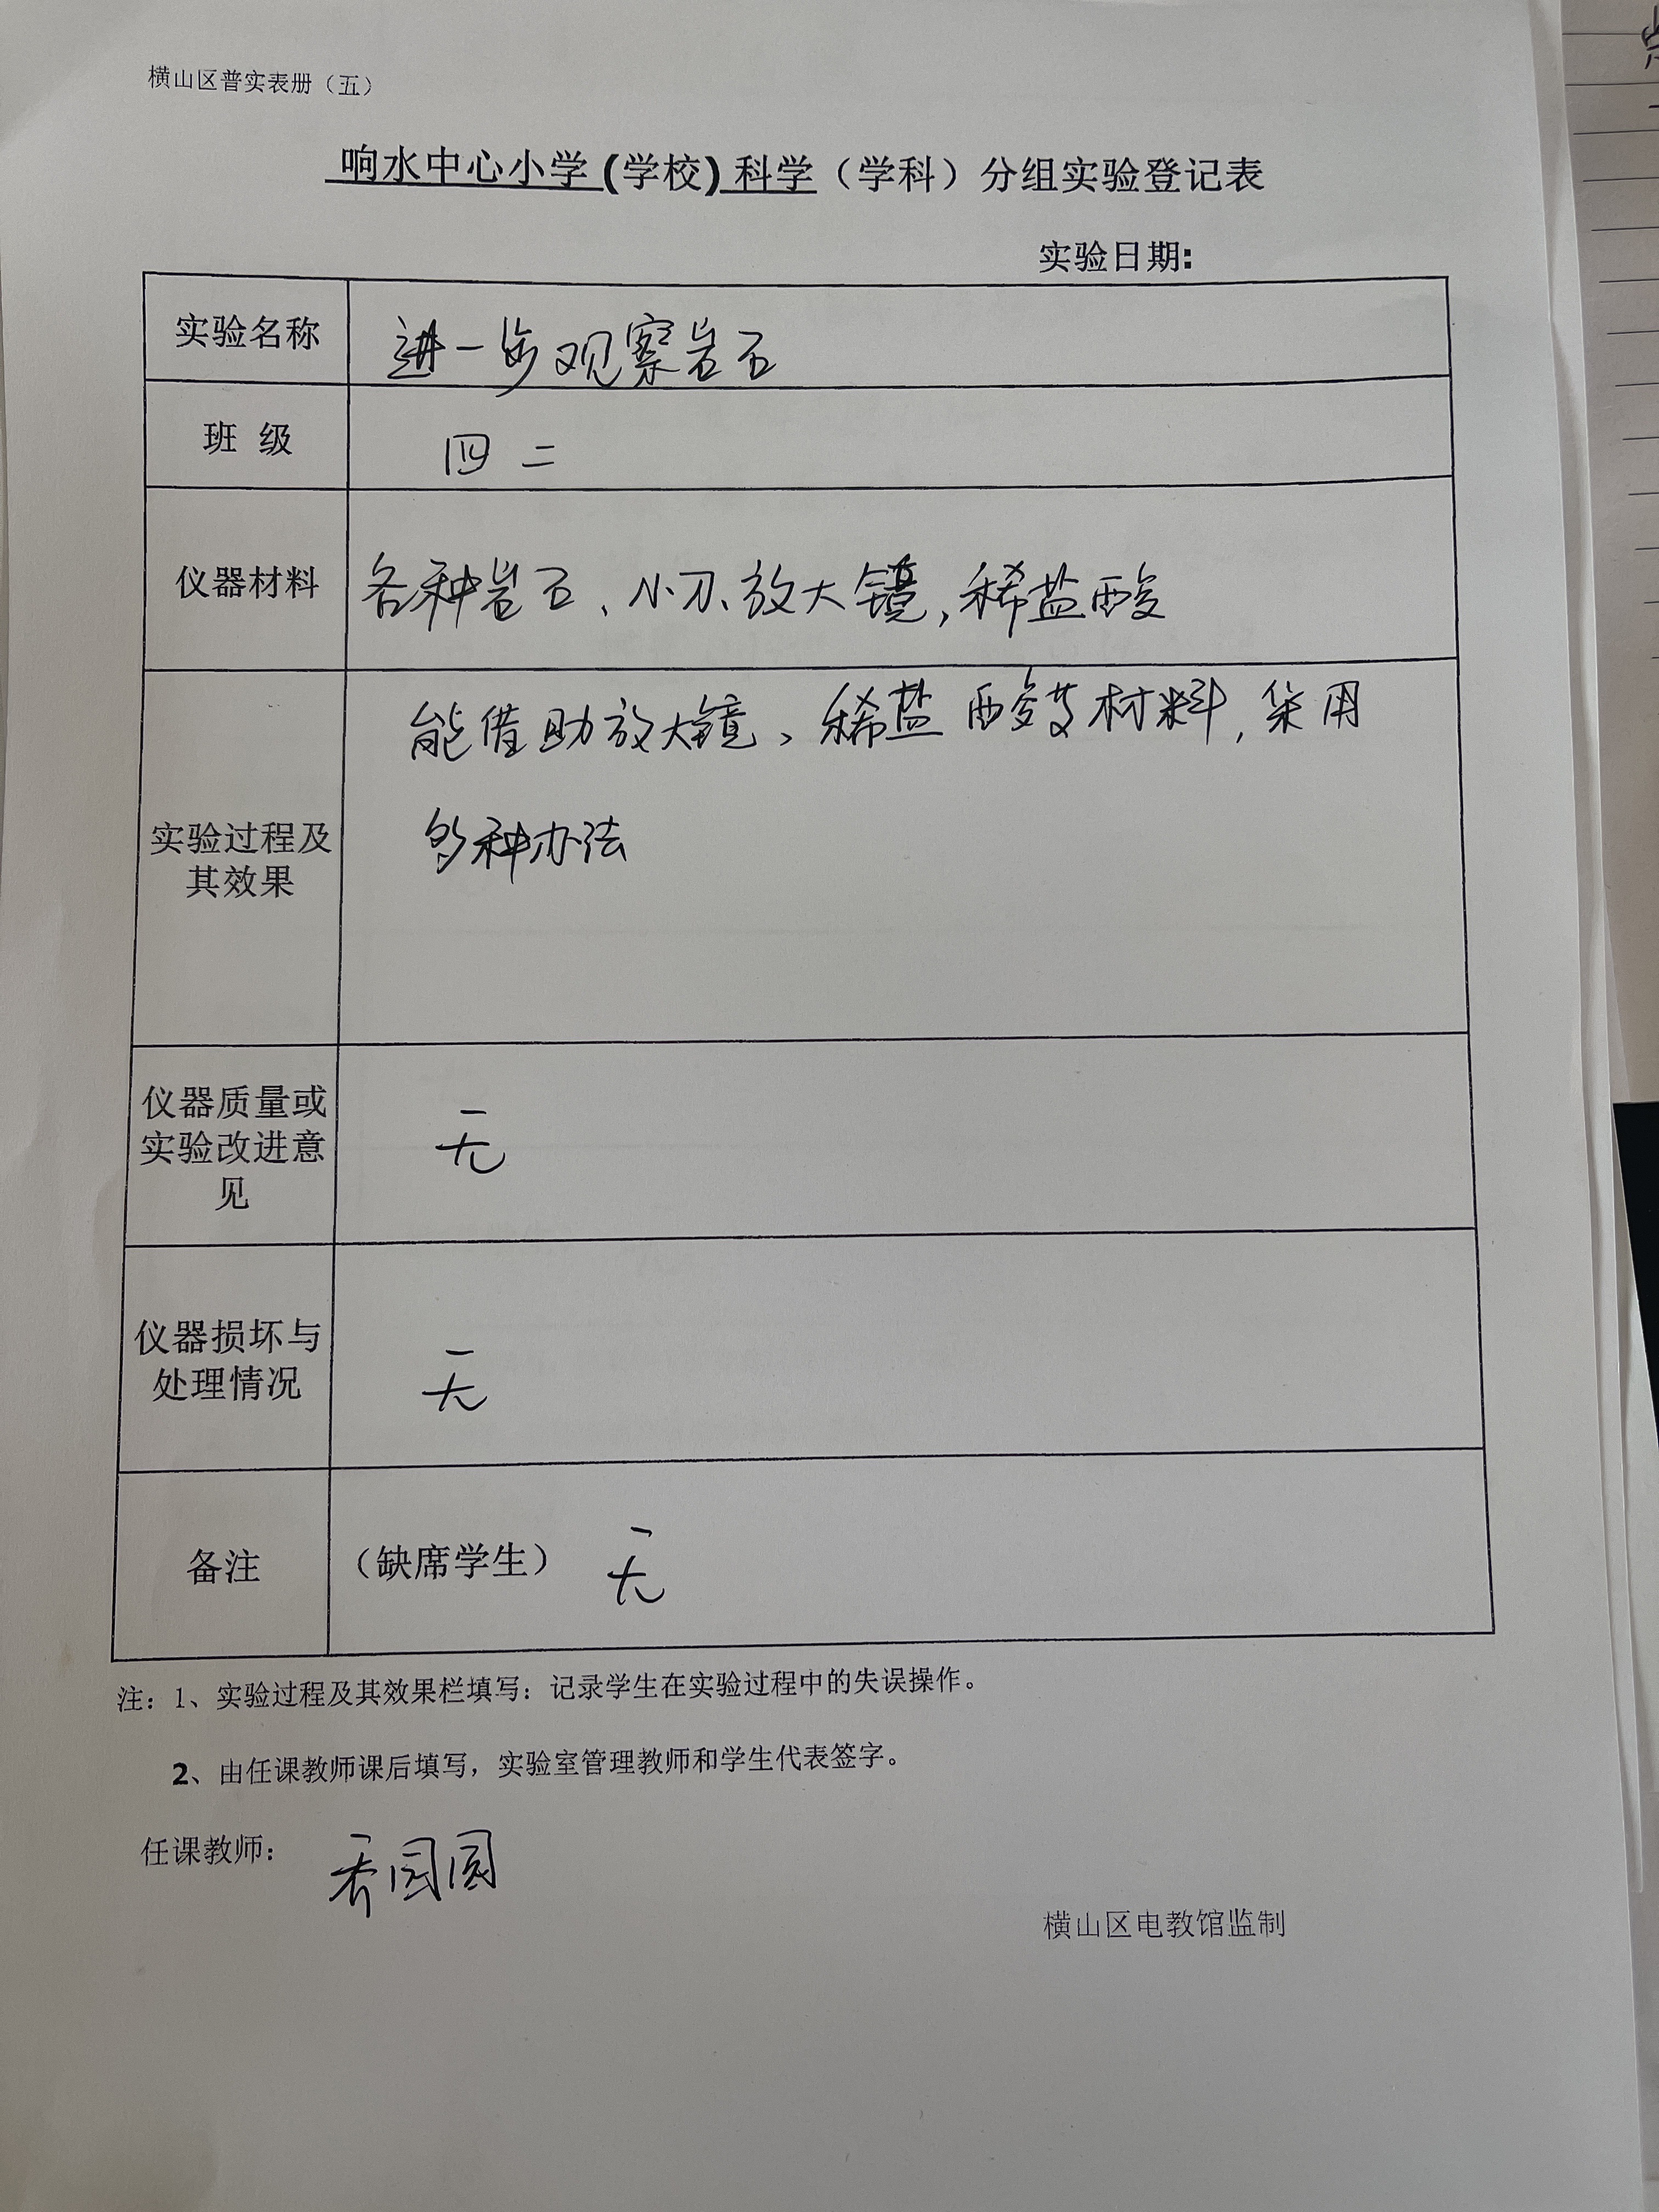 横山区普实表册（五）
响水中心小学(学校)科学（学科）分组实验登记表
实验日期:
实验名称 进一步观察岩石
班 级 四 二
仪器材料 各种岩石、小刀、放大镜,稀盐酸
能借助放大镜、稀盐酸等材料,采用
实验过程及
其效果
多种办法
仪器质量或
实验改进意
见
无
仪器损坏与
处理情况
无
备注 （缺席学生） 无
注：1、实验过程及其效果栏填写：记录学生在实验过程中的失误操作。
2、由任课教师课后填写，实验室管理教师和学生代表签字。
任课教师： 园圆
横山区电教馆监制